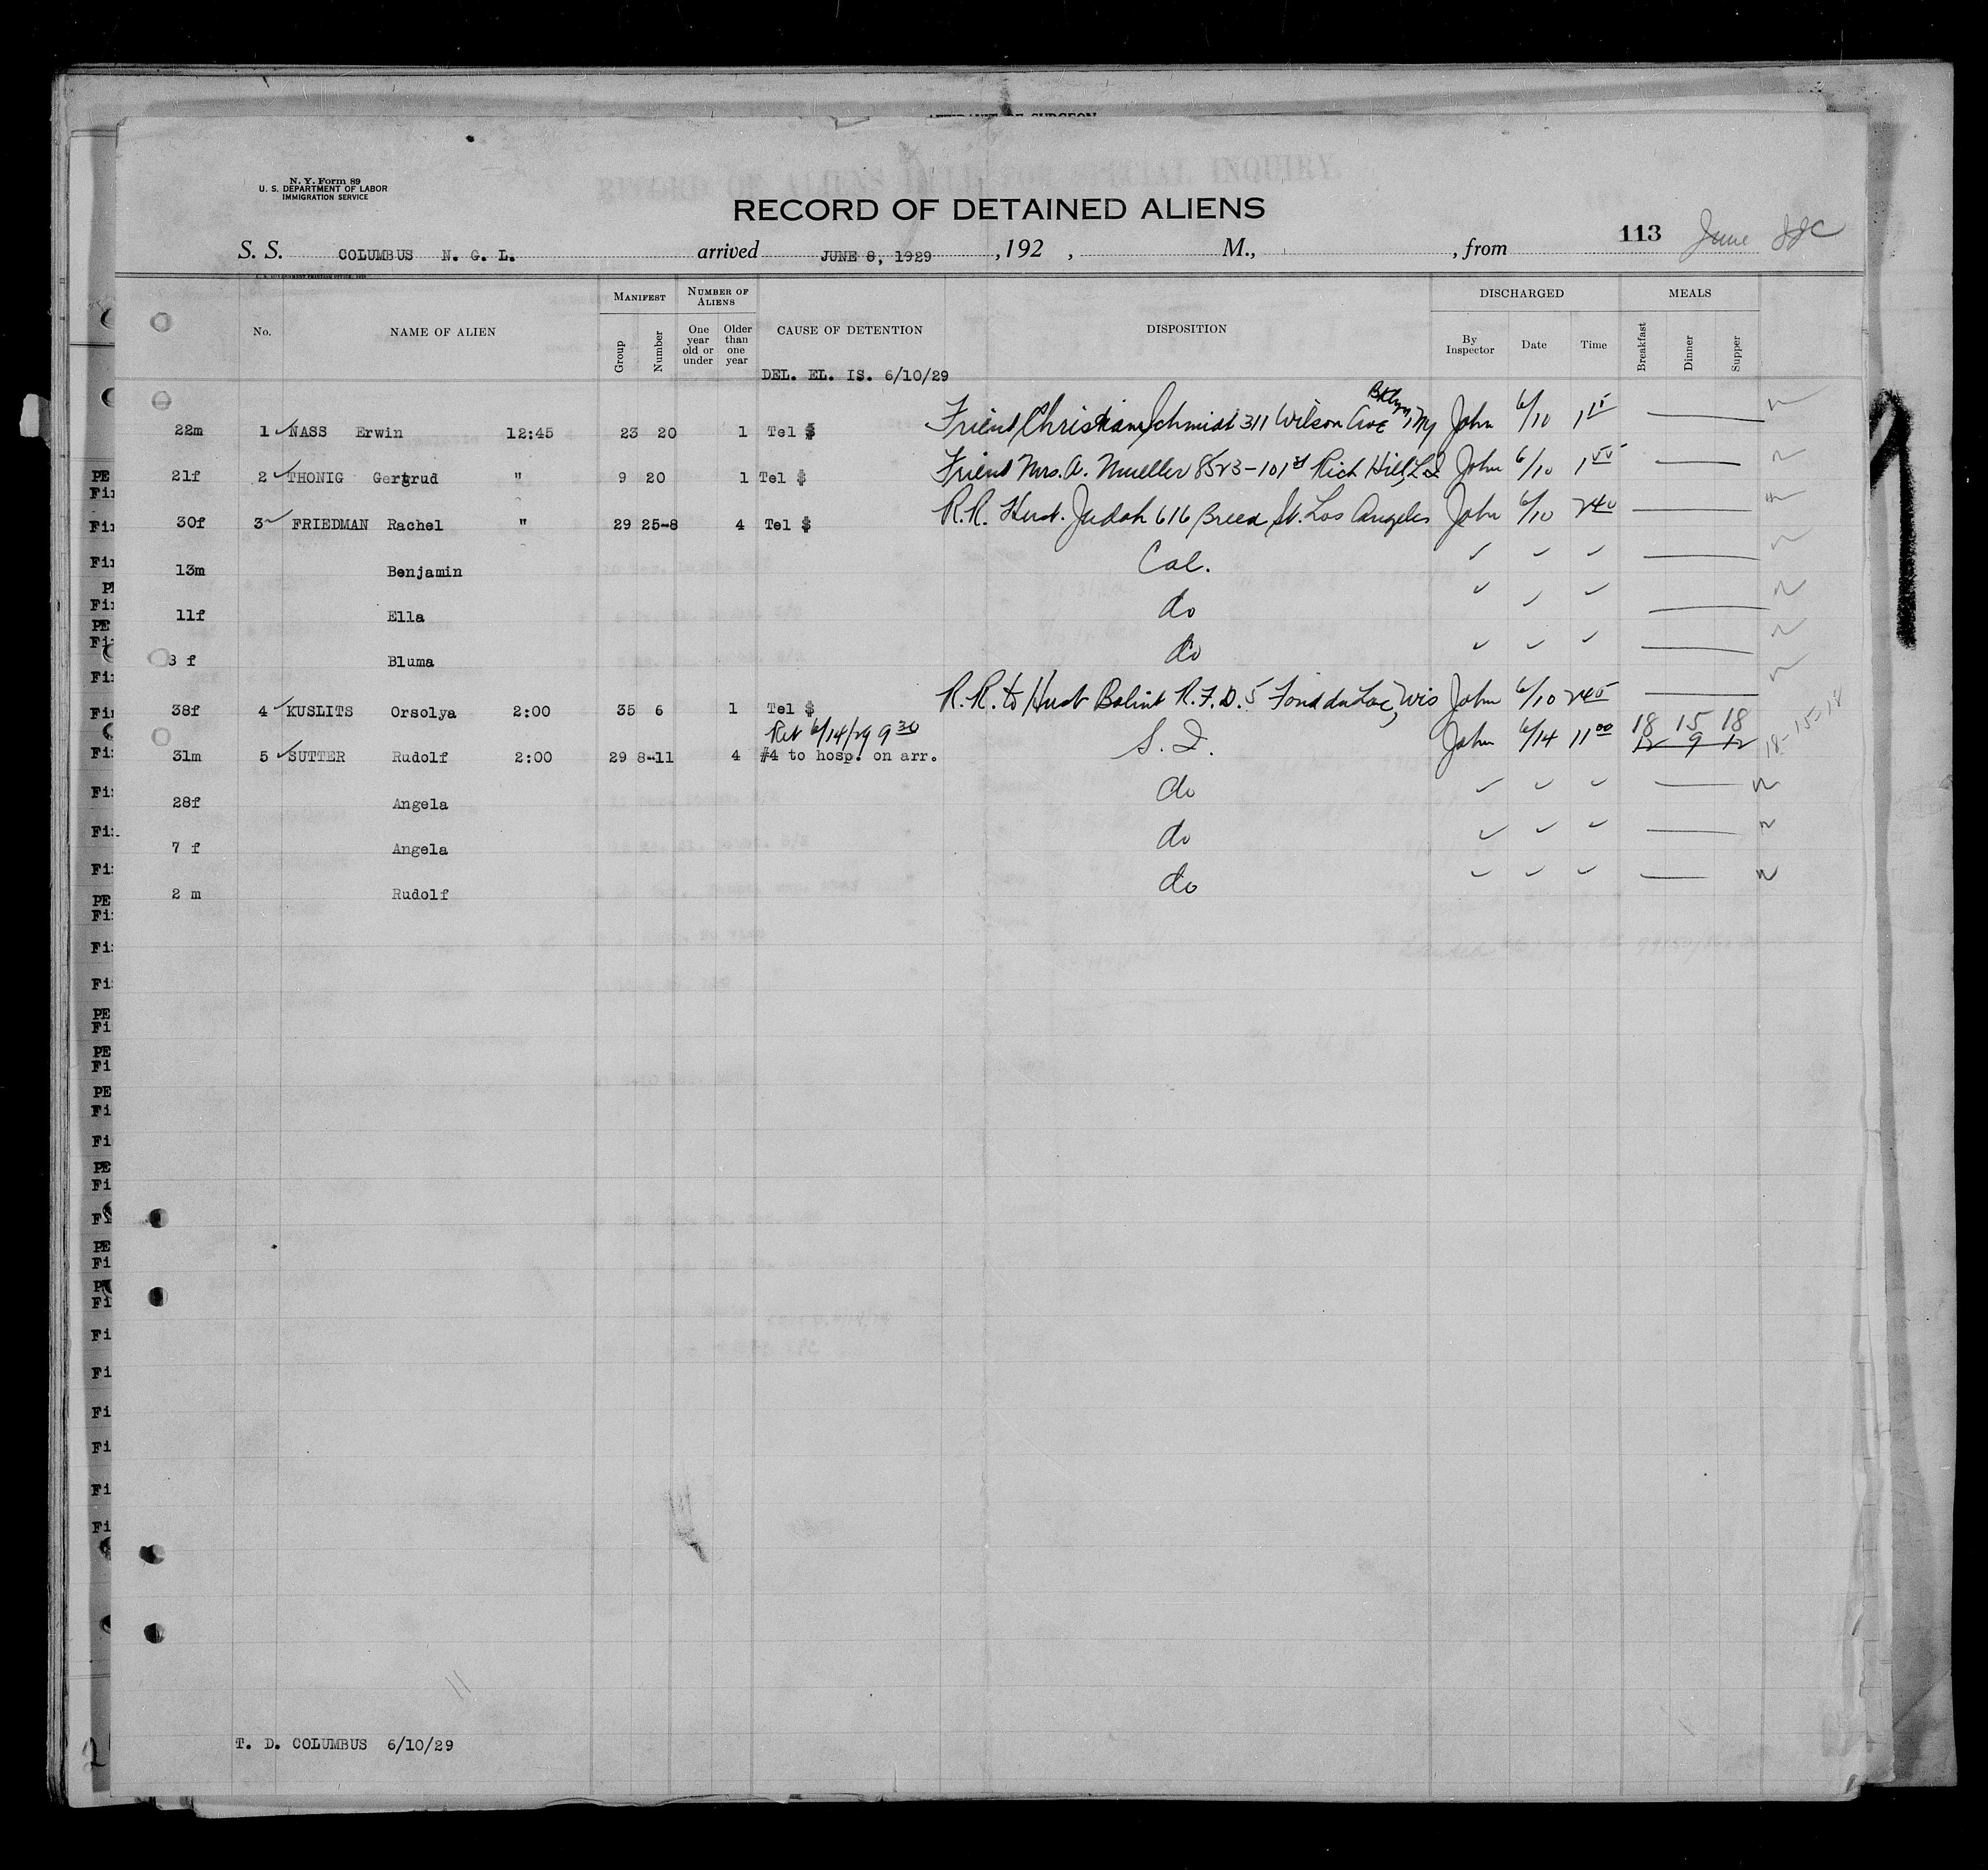 N. Y. Form 89
U. S. DEPARTMENT OF LABOR
IMMIGRATION SERVICE
RECORD OF DETAINED ALIENS
113 June
S. S. COLUMBUS N. G. L. arrived JUNE 8, 1929 , 192 , M., , from
No. NAME OF ALIEN MANIFEST Group Number NUMBER OF ALIENS One year old or under Older than one year CAUSE OF DETENTION DISPOSITION DISCHARGED By Inspector Date Time MEALS Breakfast Dinner Supper
DEL. EL. IS. 6/10/29
22m 1 ✓ NASS Erwin 12:45 23 20 1 Tel $ Friend Christian Schmidt 311 Wilson Ave Bklyn, NY John 6/10 1 15
21f 2 ✓ THONIG Gertrud " 9 20 1 Tel $ Friend Mrs. A. Mueller 8523-101st Rich Hill, L.I John 6/10 1 55
30f 3 ✓ FRIEDMAN Rachel " 29 25-8 4 Tel $ R.R. Husb. Judah 616 Breed St. Los Angeles John 6/10 2 40
13m Benjamin Cal. ✓ ✓ ✓
11f Ella do ✓ ✓ ✓
8 f Bluma do ✓ ✓ ✓
38f 4 ✓ KUSLITS Orsolya 2:00 35 6 1 Tel $ R.R. to Husb Balint R.F.D. 5 Fond du Lac, Wis John 6/10 2 45
Ret 6/14/29 9 30
31m 5 ✓ SUTTER Rudolf 2:00 29 8-11 4 #4 to hosp. on arr. S. I. John 6/14 11 00 18 15 18 18-15-18
12 9 12
28f Angela do ✓ ✓ ✓
7 f Angela do ✓ ✓ ✓
2 m Rudolf do ✓ ✓ ✓
T. D. COLUMBUS 6/10/29